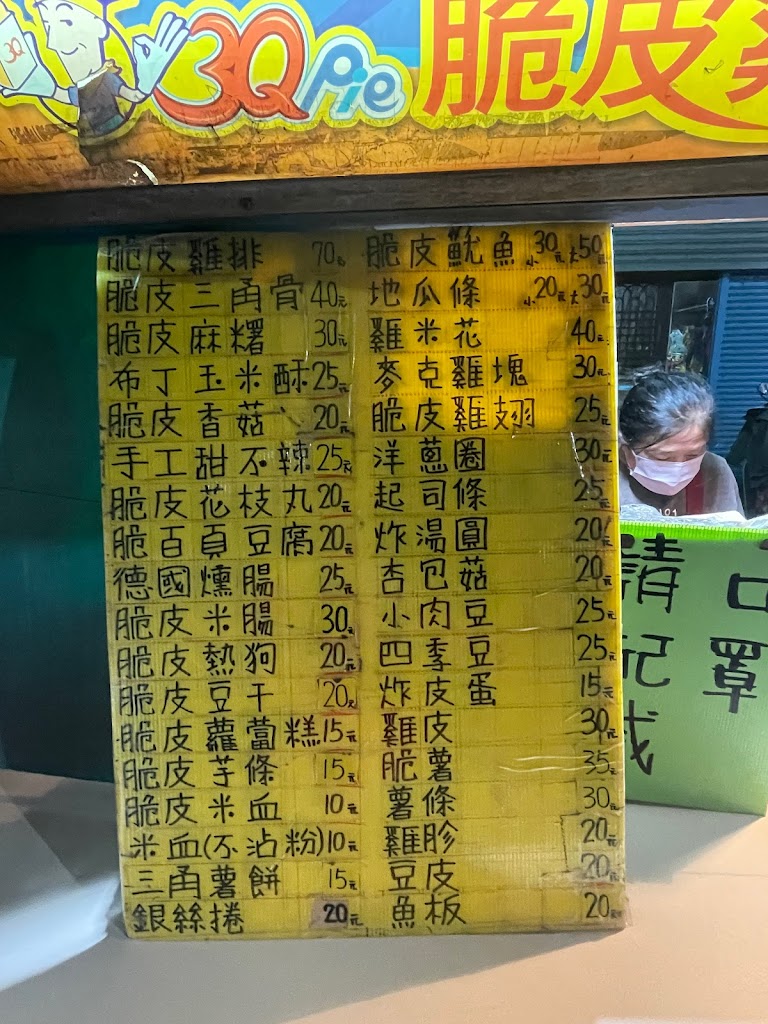 3Q
3Q Pie 脆皮雞
脆皮雞排 70元
脆皮三角骨 40元
脆皮麻糬 30元
布丁玉米酥 25元
脆皮香菇 20元
手工甜不辣 25元
脆皮花枝丸 20元
脆百頁豆腐 20元
德國燻腸 25元
脆皮米腸 30元
脆皮熱狗 20元
脆皮豆干 20元
脆皮蘿蔔糕 15元
脆皮芋條 15元
脆皮米血 10元
米血(不沾粉) 10元
三角薯餅 15元
銀絲捲 20元
脆皮魷魚 小30元 大50元
地瓜條 小20元 大30元
雞米花 40元
麥克雞塊 30元
脆皮雞翅 25元
洋蔥圈 30元
起司條 25元
炸湯圓 20元
杏包菇 20元
小肉豆 25元
四季豆 25元
炸皮蛋 15元
雞皮 30元
脆薯 35元
薯條 30元
雞胗 20元
豆皮 20元
魚板 20元
請
口罩